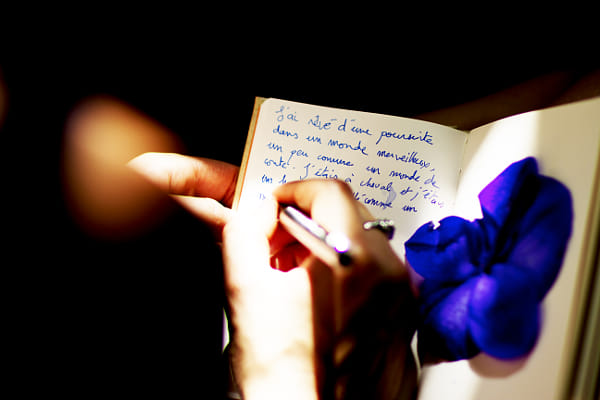 J'ai rêvé d'une poursuite
dans un monde merveilleux,
un peu comme un monde de
conte. J'étais à cheval et j'étais
un h comme un